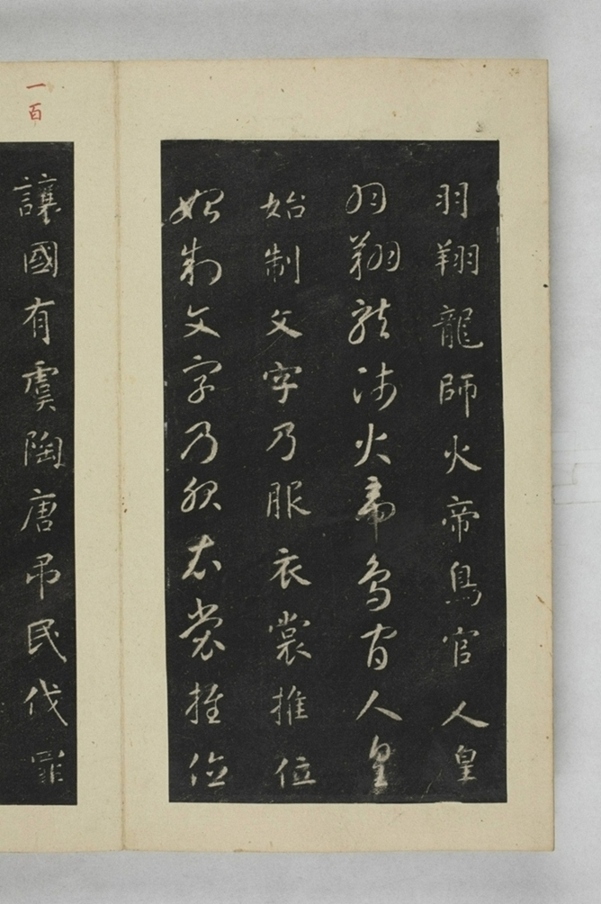 羽翔龍師火帝鳥官人皇
羽翔龍師火帝鳥官人皇
始制文字乃服衣裳推位
始制文字乃服衣裳推位
一百
讓國有虞陶唐弔民伐罪